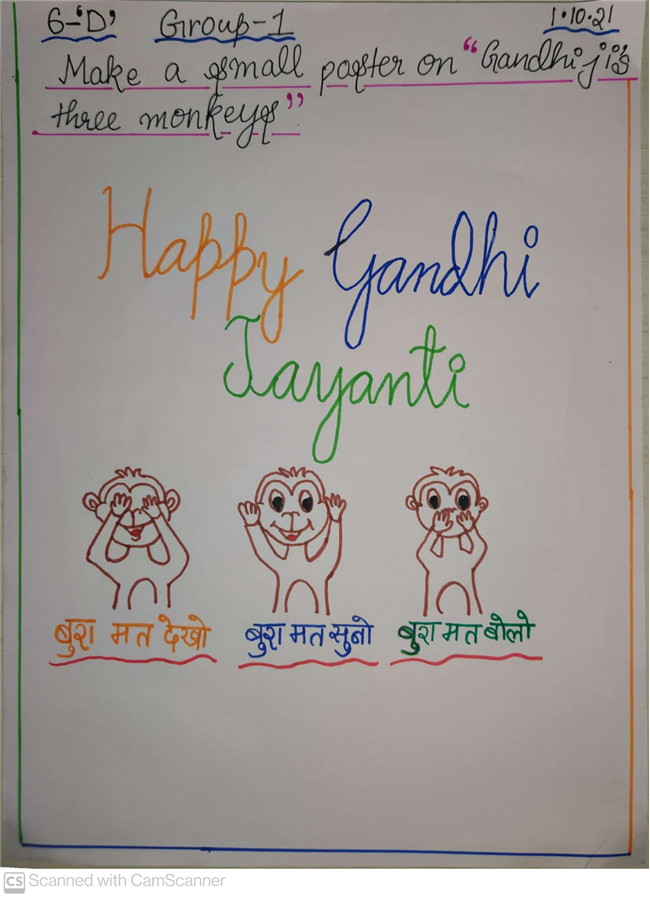 6-'D' Group-1 1.10.21
Make a small poster on "Gandhiji's
three monkeys"
Happy Gandhi
Jayanti
बुरा मत देखो बुरा मत सुनो बुरा मत बोलो
CS Scanned with CamScanner